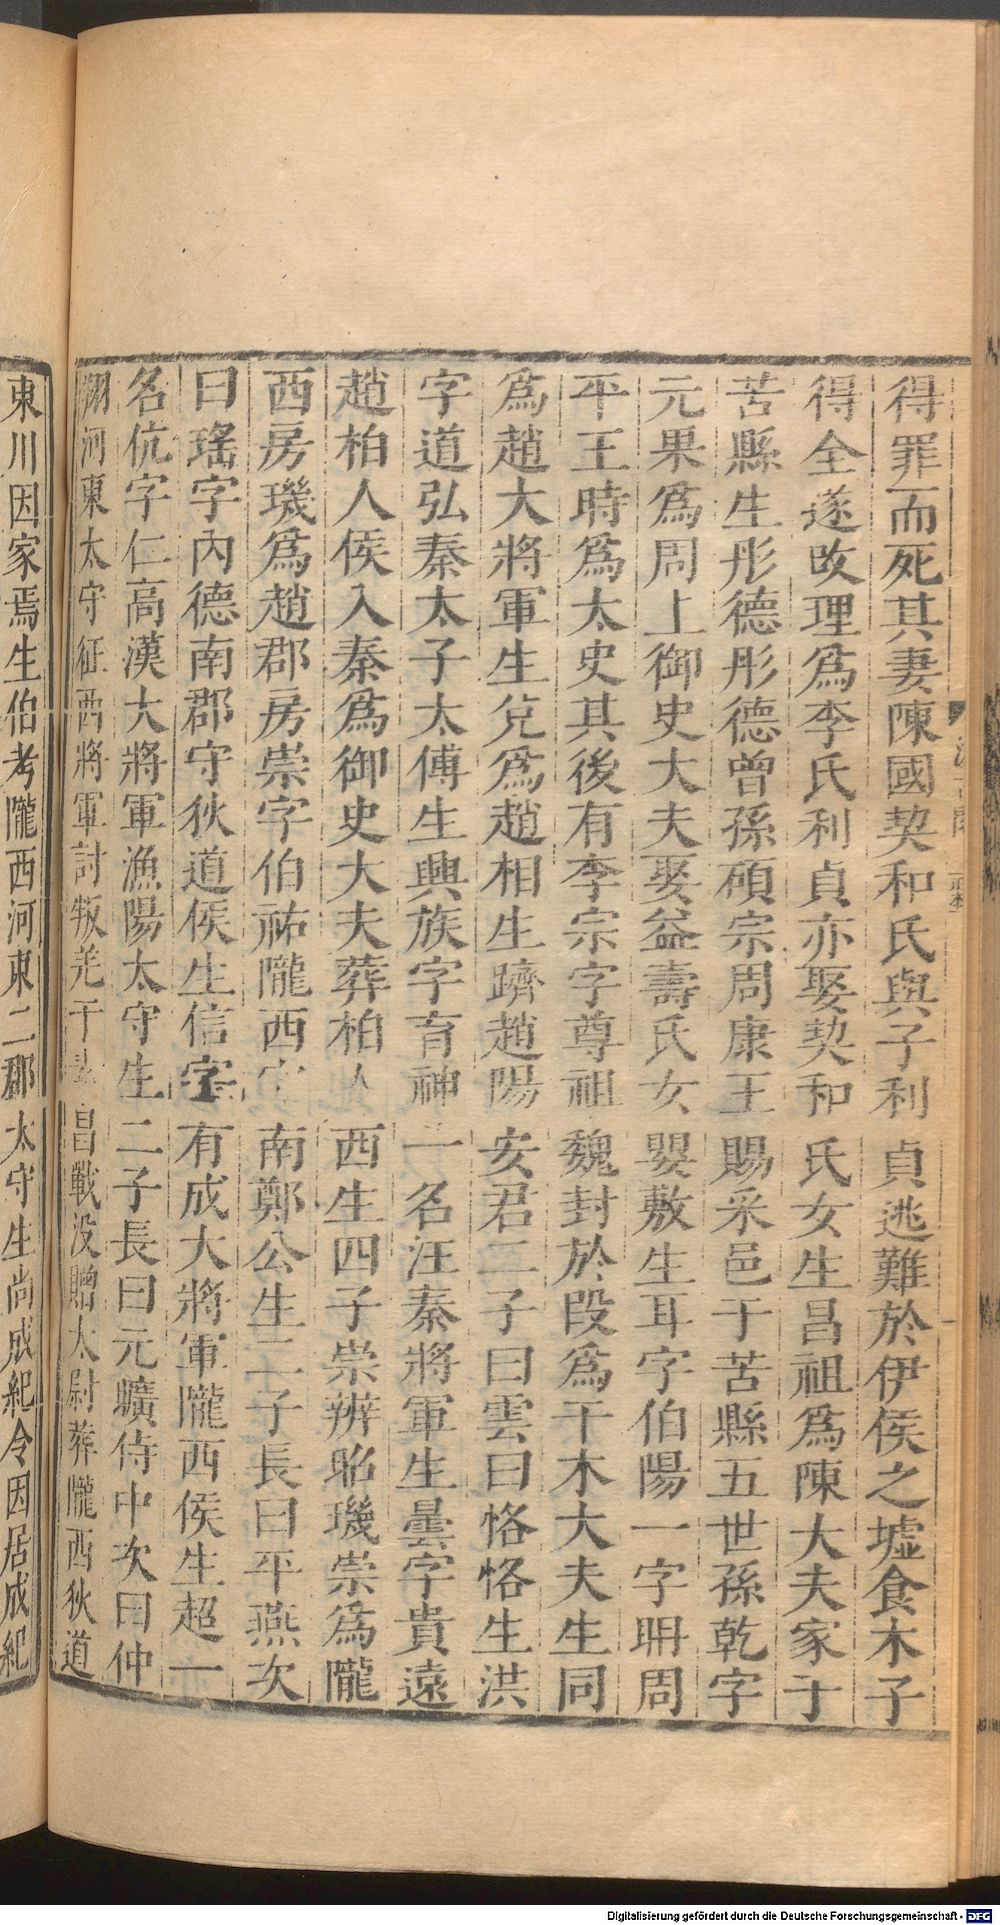 得罪而死其妻陳國契和氏與子利貞逃難於伊侯之墟食木子
得全遂改理爲李氏利貞亦娶契和氏女生昌祖爲陳大夫家于
苦縣生彤德彤德曾孫碩宗周康王賜采邑于苦縣五世孫乾字
元果爲周上御史大夫娶益壽氏女嬰敷生耳字伯陽一字耼周
平王時爲太史其後有李宗字尊祖魏封於段爲干木大夫生同
爲趙大將軍生兌爲趙相生躋趙陽安君二子曰雲曰恪恪生洪
字道弘秦太子太傅生興族字育神一名汪秦將軍生曇字貴遠
趙柏人侯入秦爲御史大夫葬柏人西生四子崇辨昭璣崇爲隴
西房璣爲趙郡房崇字伯祐隴西守南鄭公生二子長曰平燕次
曰瑤字內德南郡守狄道侯生信字有成大將軍隴西侯生超一
名伉字仁高漢大將軍漁陽太守生二子長曰元曠侍中次曰仲
翔河東太守征西將軍討叛羌于素昌戰没贈太尉葬隴西狄道
東川因家焉生伯考隴西河東二郡太守生尚成紀令因居成紀
Digitalisierung gefördert durch die Deutsche Forschungsgemeinschaft - DFG